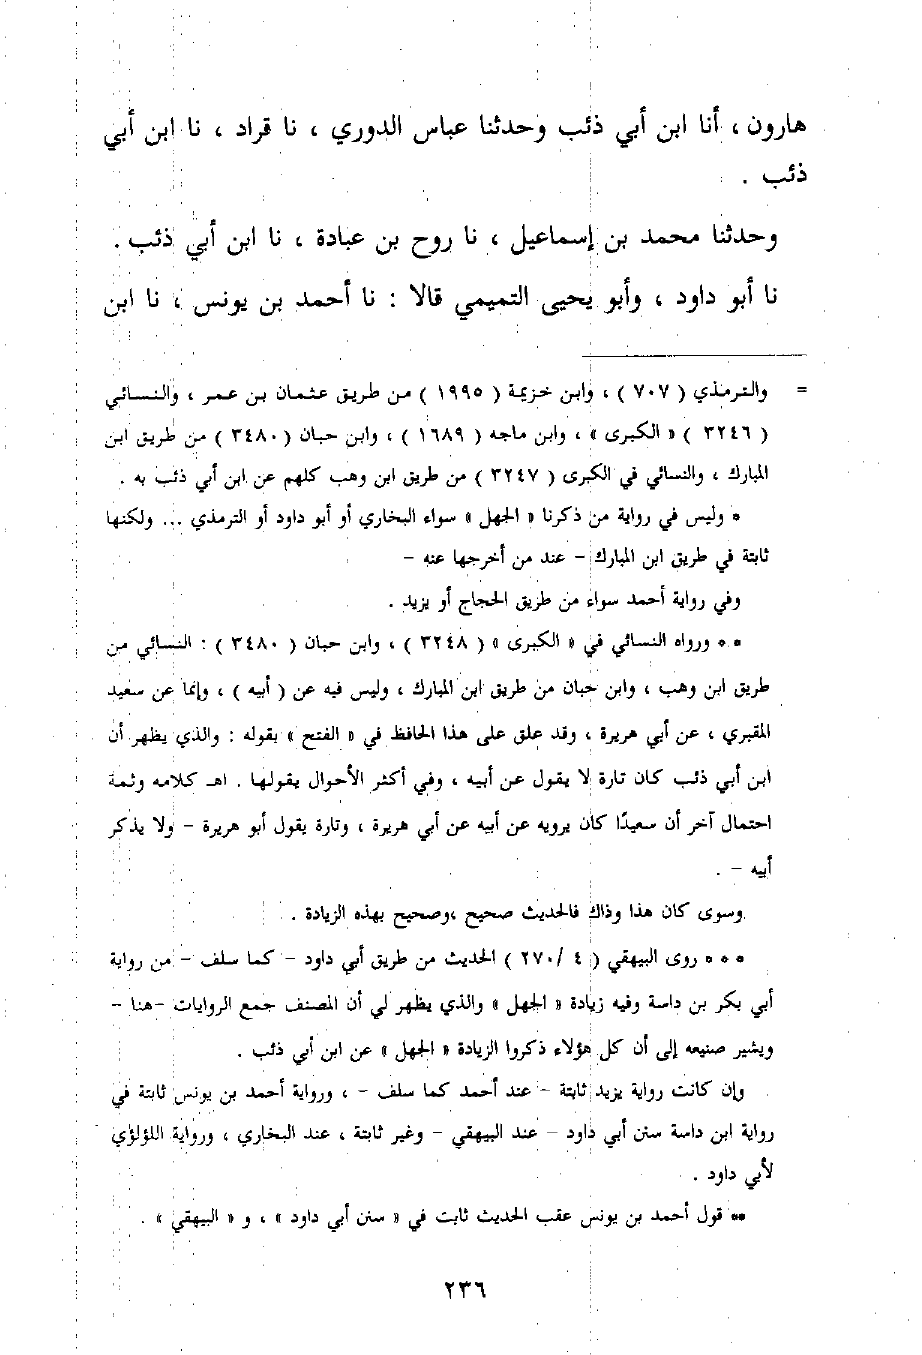 هارون ، أنا ابن أبي ذئب وحدثنا عباس الدوري ، نا قراد ، نا ابن أبي
ذئب .
وحدثنا محمد بن إسماعيل ، نا روح بن عبادة ، نا ابن أبي ذئب .
نا أبو داود ، وأبو يحيى التميمي قالا : نا أحمد بن يونس ، نا ابن
= والترمذي ( ٧٠٧ ) ، وابن خزيمة ( ١٩٩٥ ) من طريق عثمان بن عمر ، والنسائي
( ٣٢٤٦ ) « الكبرى » ، وابن ماجه ( ١٦٨٩ ) ، وابن حبان ( ٣٤٨٠ ) من طريق ابن
المبارك ، والنسائي في الكبرى ( ٣٢٤٧ ) من طريق ابن وهب كلهم عن ابن أبي ذئب به .
* وليس في رواية من ذكرنا « الجهل » سواء البخاري أو أبو داود أو الترمذي ... ولكنها
ثابتة في طريق ابن المبارك – عند من أخرجها عنه –
وفي رواية أحمد سواء من طريق الحجاج أو يزيد .
* * ورواه النسائي في « الكبرى » ( ٣٢٤٨ ) ، وابن حبان ( ٣٤٨٠ ) : النسائي من
طريق ابن وهب ، وابن حبان من طريق ابن المبارك ، وليس فيه عن ( أبيه ) ، وإنما عن سعيد
المقبري ، عن أبي هريرة ، وقد علق على هذا الحافظ في « الفتح » بقوله : والذي يظهر أن
ابن أبي ذئب كان تارة لا يقول عن أبيه ، وفي أكثر الأحوال يقولها . اهـ كلامه وثمة
احتمال آخر أن سعيدًا كان يرويه عن أبيه عن أبي هريرة ، وتارة يقول أبو هريرة – ولا يذكر
أبيه – .
وسوى كان هذا وذاك فالحديث صحيح ،وصحيح بهذه الزيادة .
* * * روى البيهقي ( ٤ /٢٧٠ ) الحديث من طريق أبي داود – كما سلف – من رواية
أبي بكر بن داسة وفيه زيادة « الجهل » والذي يظهر لي أن المصنف جمع الروايات –هنا –
ويشير صنيعه إلى أن كل هؤلاء ذكروا الزيادة « الجهل » عن ابن أبي ذئب .
وإن كانت رواية يزيد ثابتة – عند أحمد كما سلف – ، ورواية أحمد بن يونس ثابتة في
رواية ابن داسة سنن أبي داود – عند البيهقي – وغير ثابتة ، عند البخاري ، ورواية اللؤلؤي
لأبي داود .
** قول أحمد بن يونس عقب الحديث ثابت في « سنن أبي داود » ، و « البيهقي » .
٢٣٦